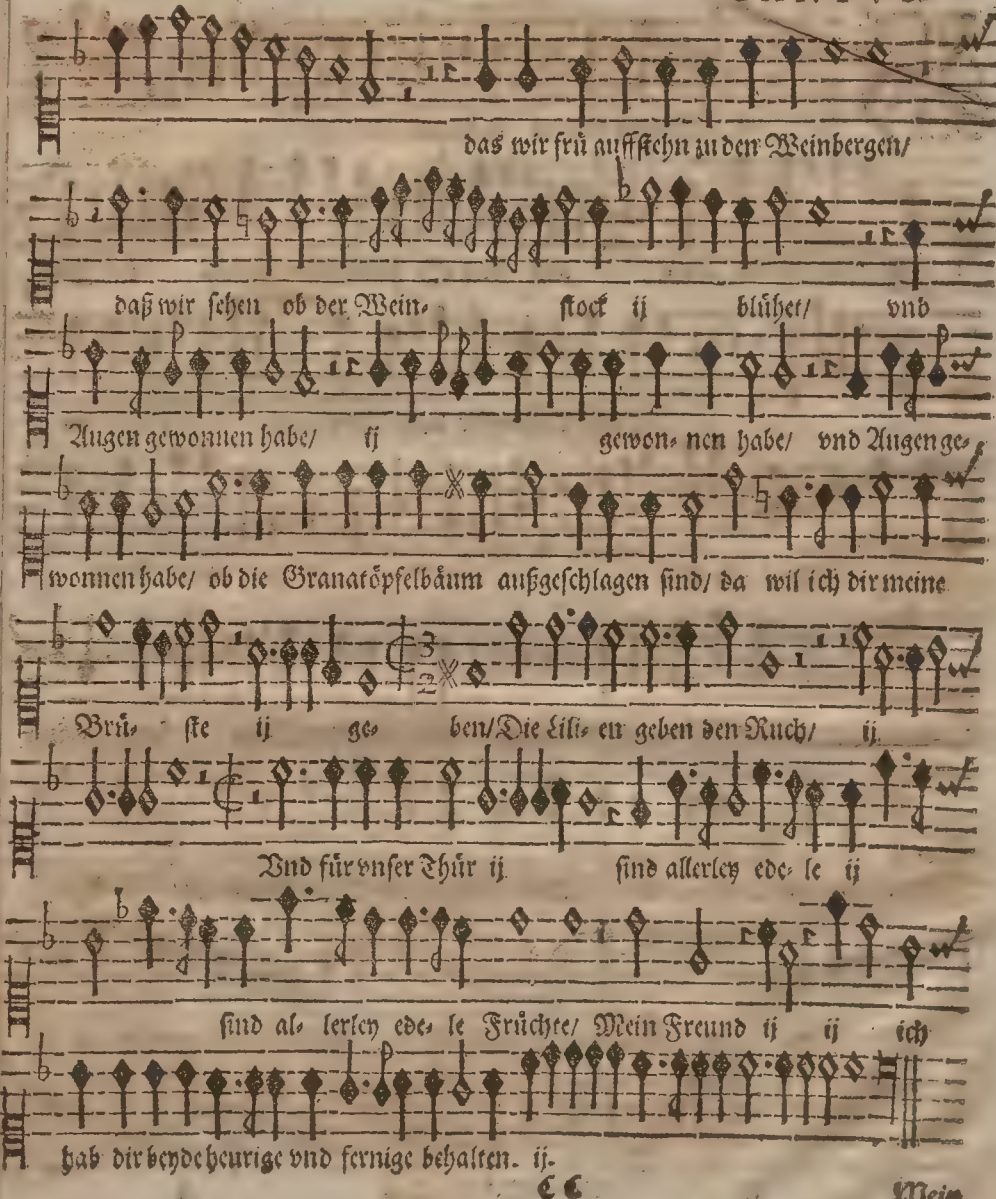 das wir frü auffstehn zu den Weinbergen/
daß wir sehen ob der Wein- stock ij blühet/ vnd
Augen gewonnen habe/ ij gewon- nen habe/ vnd Augen ge-
wonnen habe/ ob die Granatöpfelbäum außgeschlagen sind/ da wil ich dir meine
Brü- ste ij ge- ben/ Die Lili- en geben den Ruch/ ij
Vnd für vnser Thür ij sind allerley ede- le ij
sind al- lerley ede- le Früchte/ Mein Freund ij ij ich
hab dir beyde heurige vnd fernige behalten. ij.
C C Mein